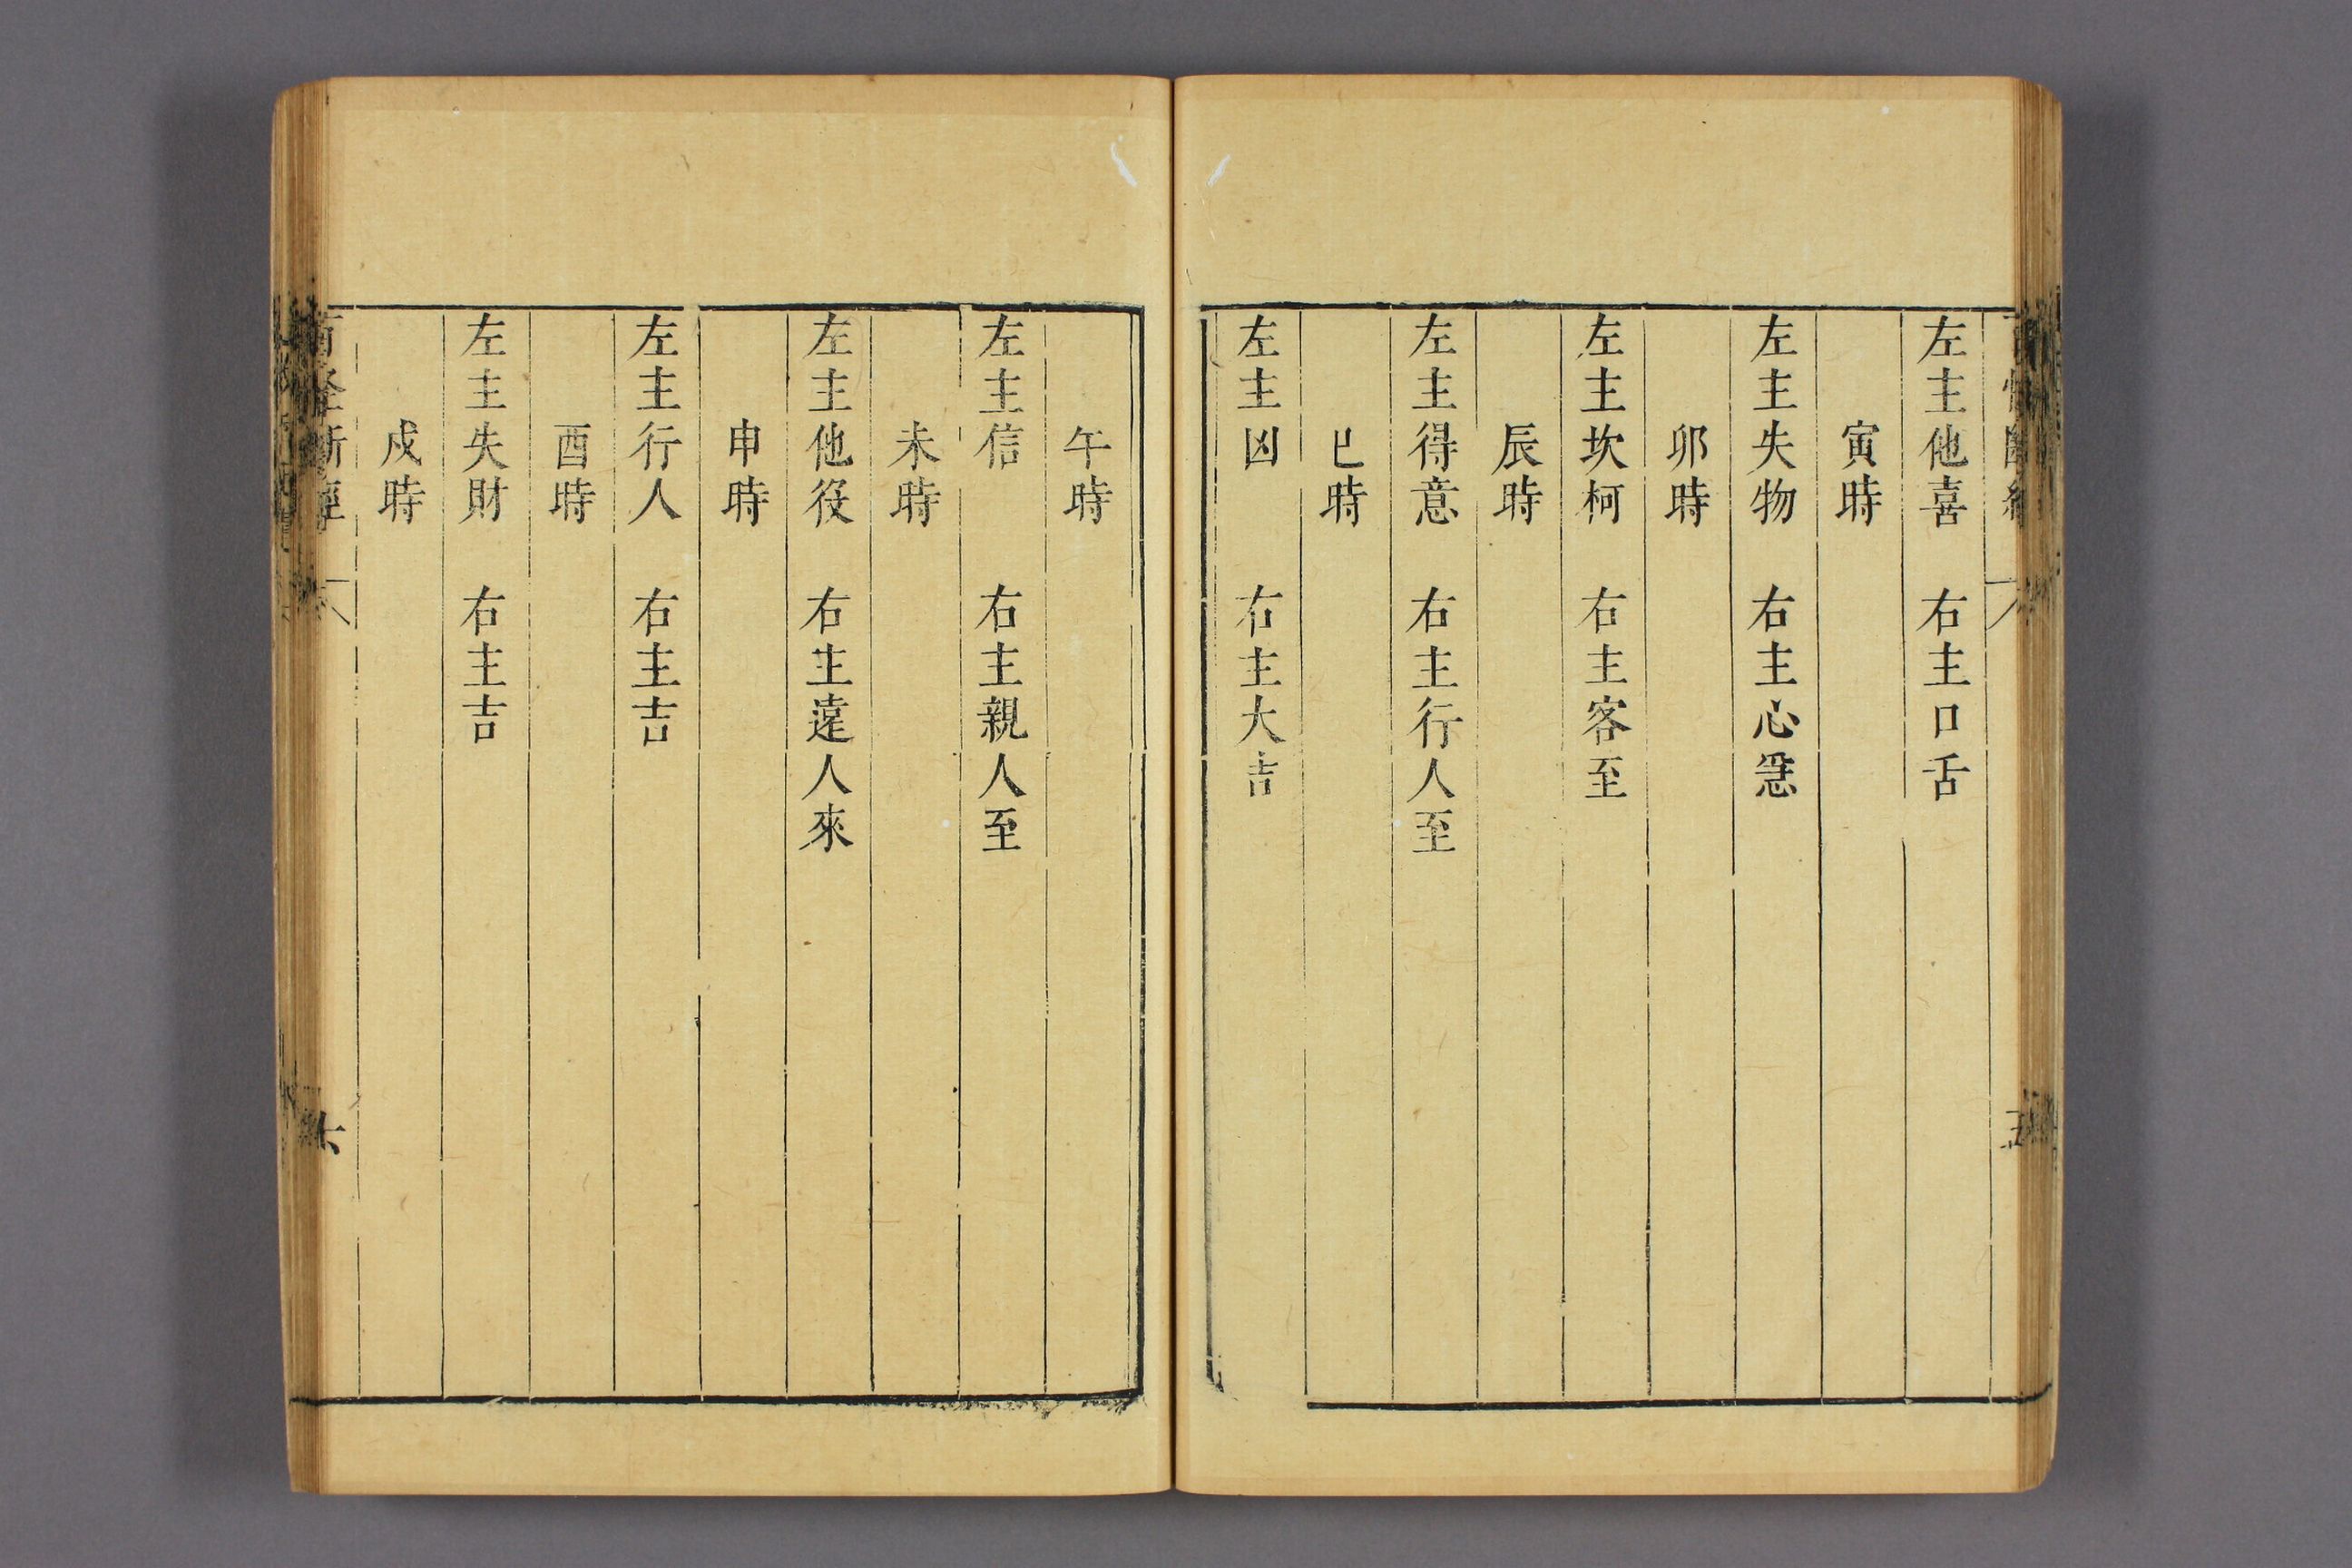 左主他喜　右主口舌
寅時
左主失物　右主心惡
卯時
左主坎柯　右主客至
辰時
左主得意　右主行人至
巳時
左主凶　右主大吉
午時
左主信　右主親人至
未時
左主他役　右主遠人來
申時
左主行人　右主吉
酉時
左主失財　右主吉
戌時
六